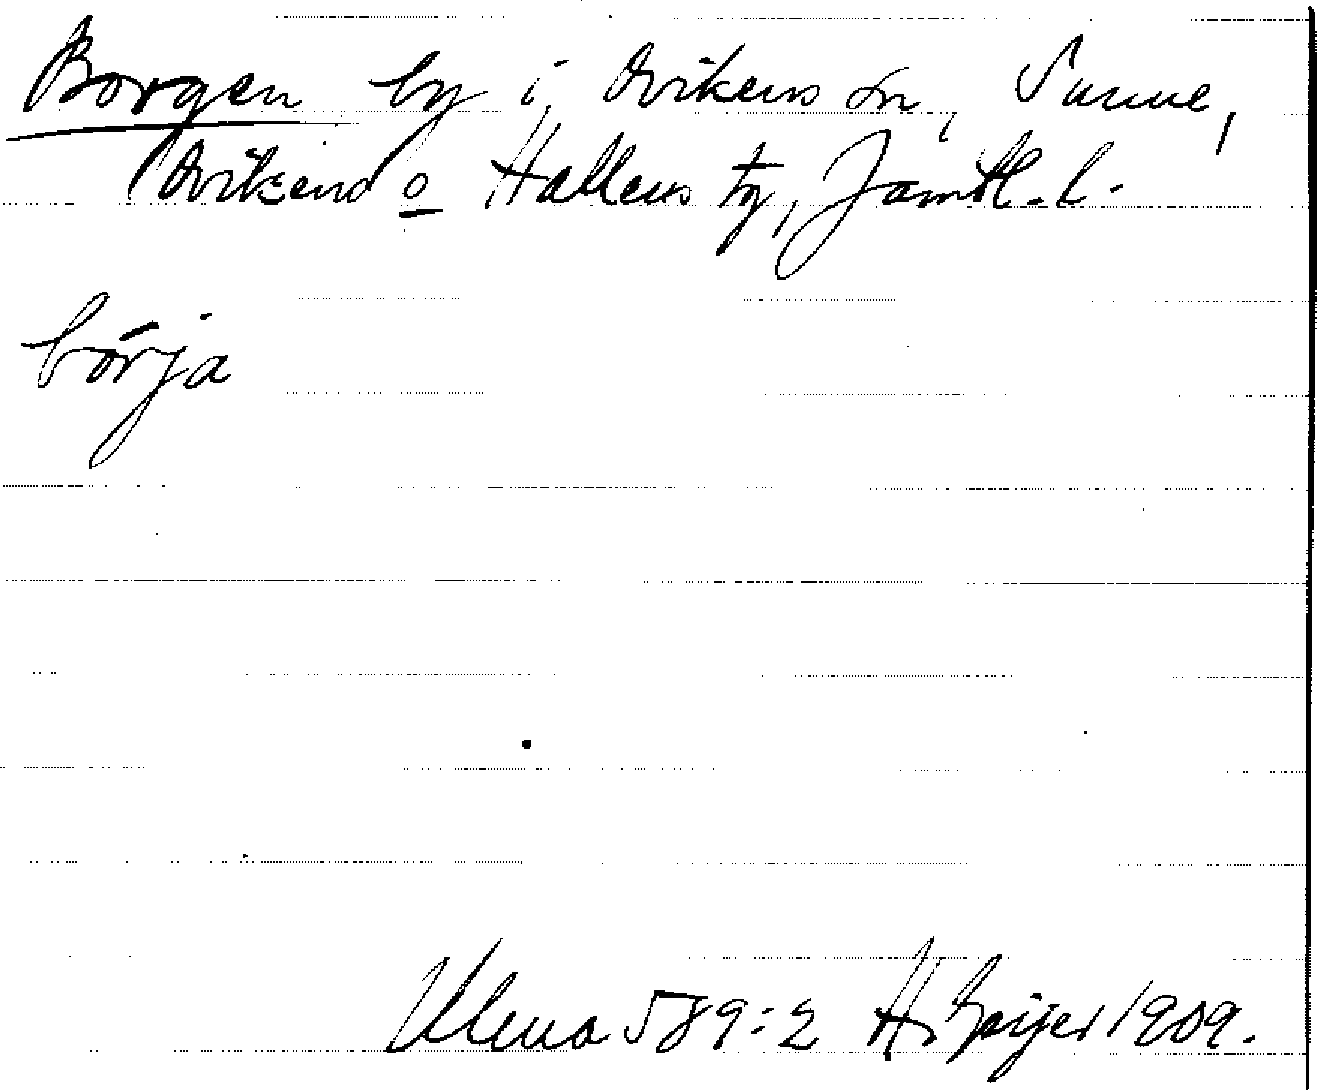 Borgen by i Ovikens sn, Sunne,
Ovikens o Hallens tg, Jämtl. l.
börja
Ulma 589:2 H. Geijer 1909.